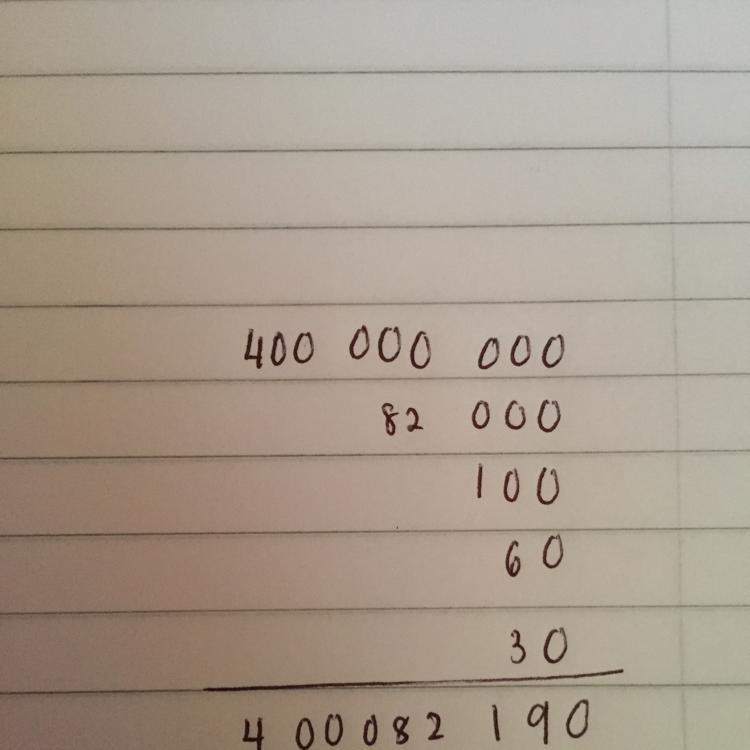 400 000 000
82 000
100
60
30
4 00082 190